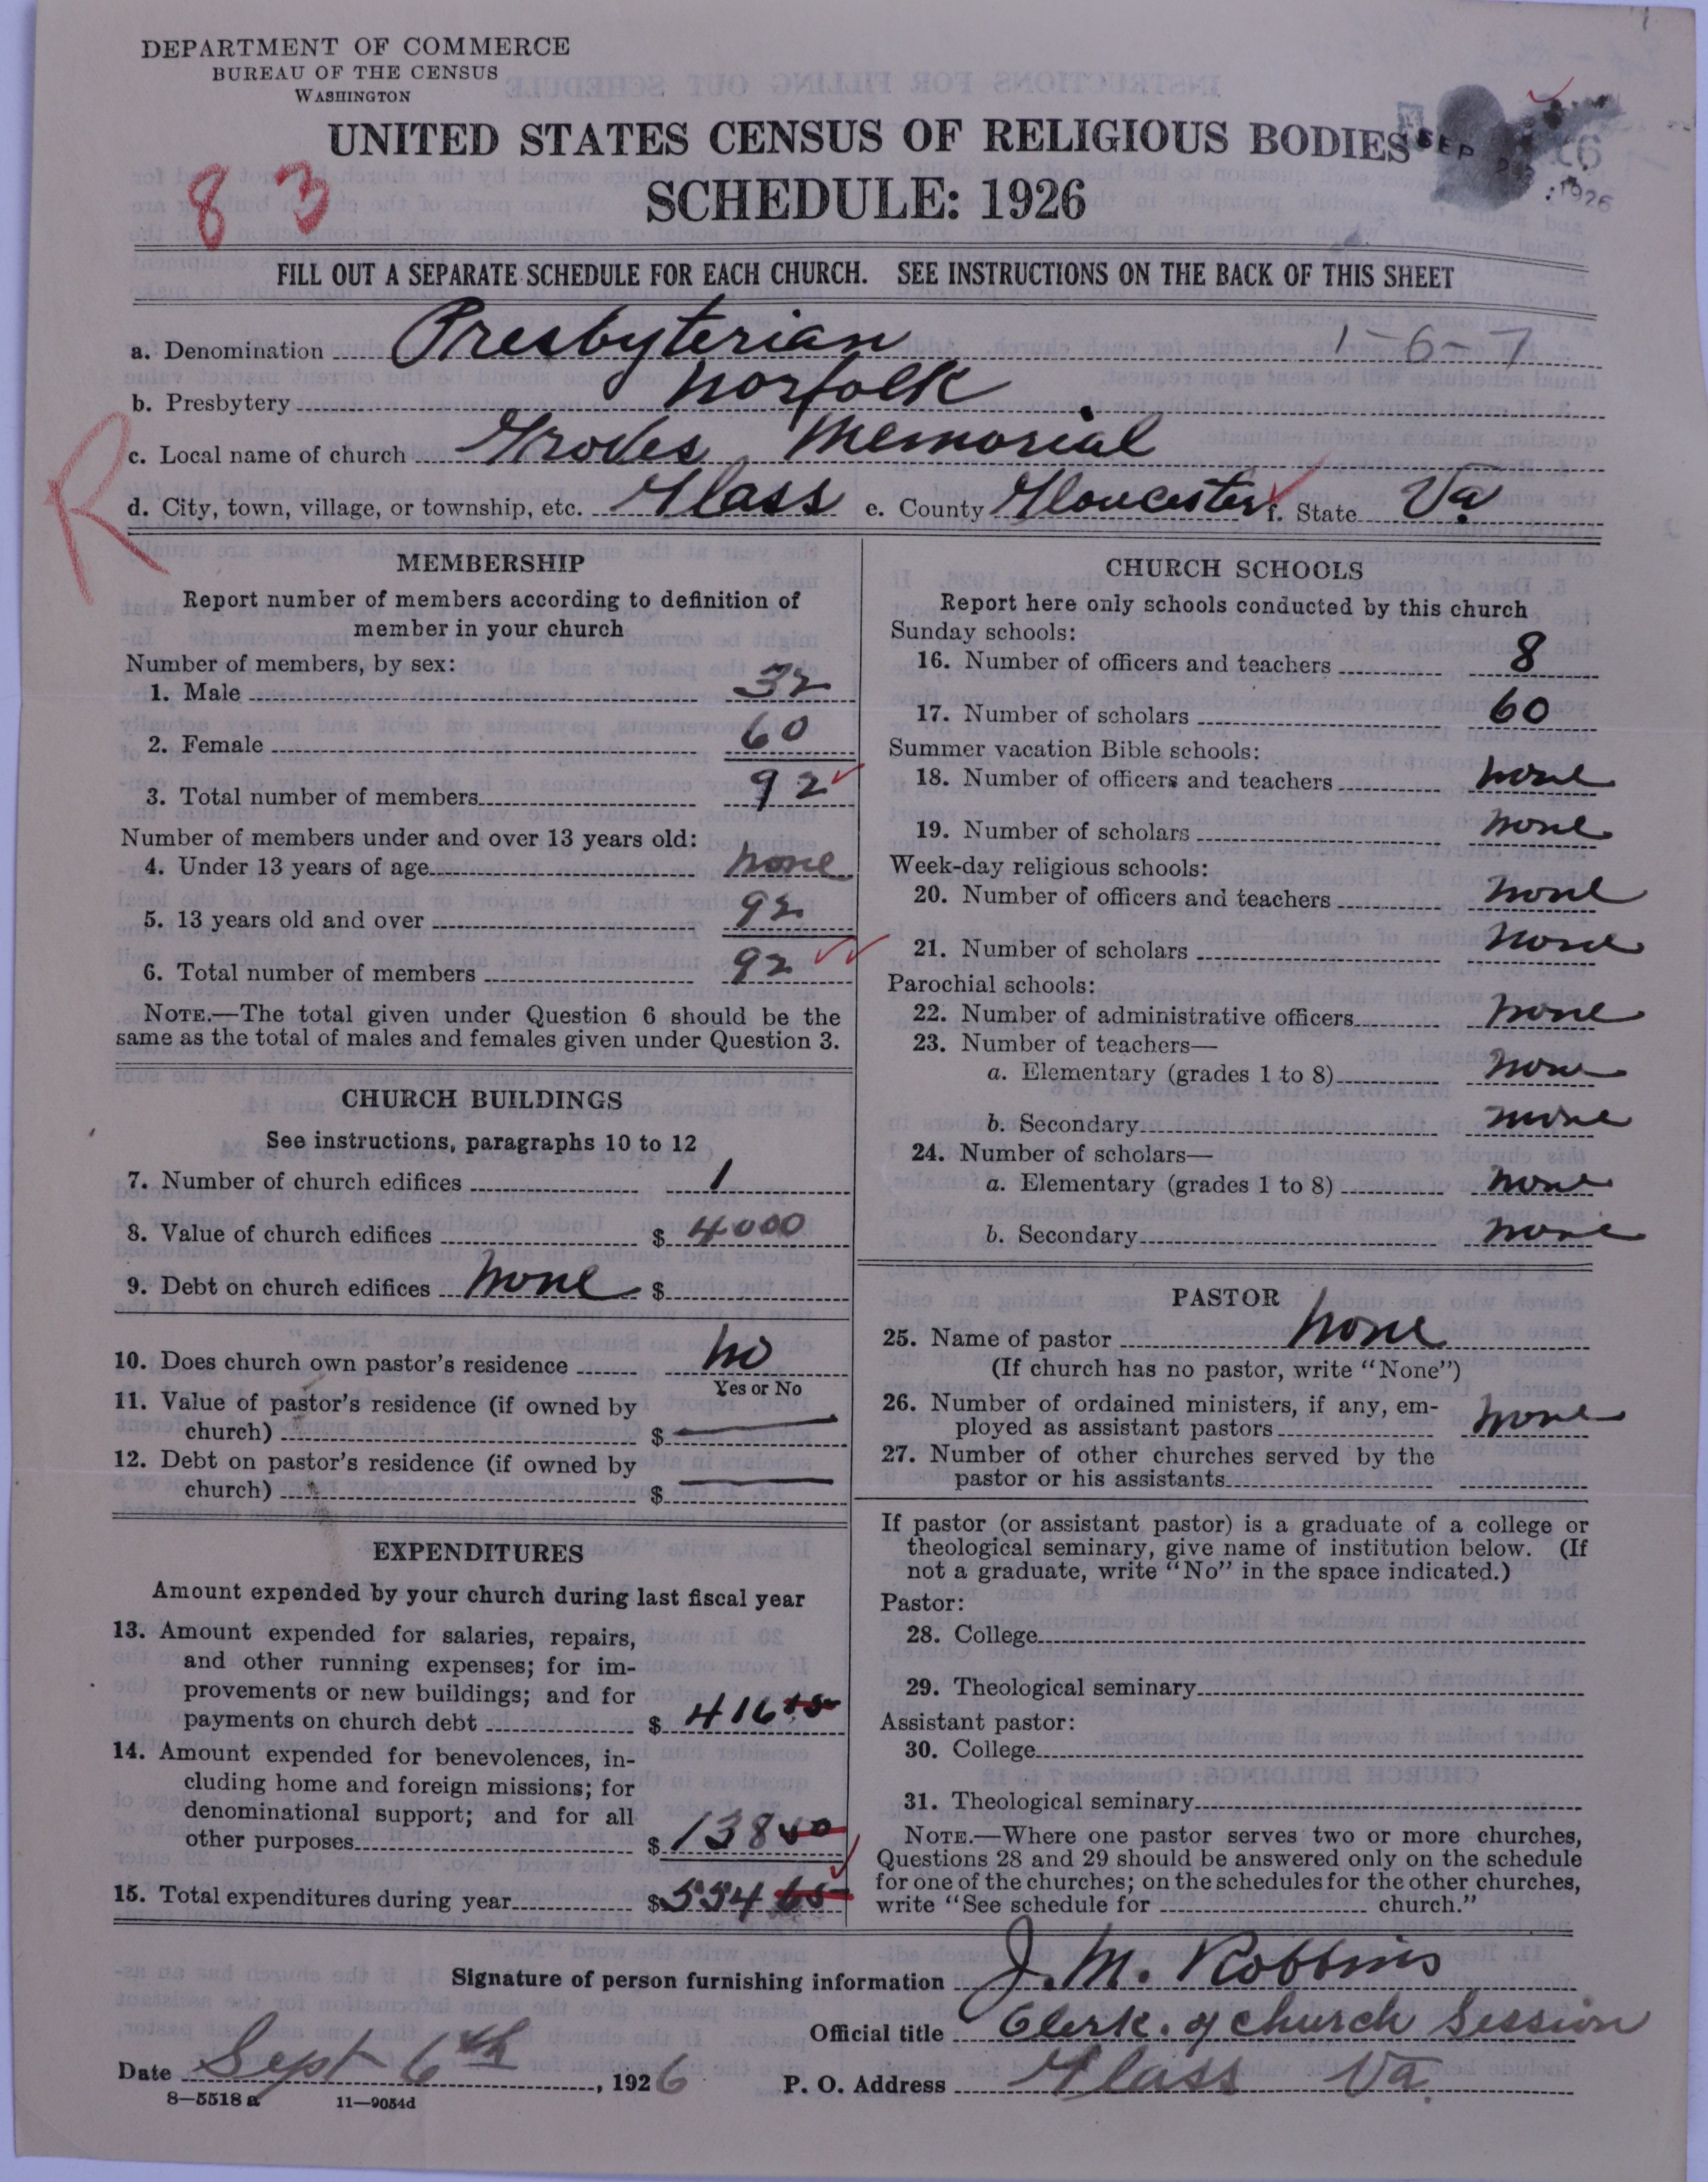 DEPARTMENT OF COMMERCE
BUREAU OF THE CENSUS
WASHINGTON
UNITED STATES CENSUS OF RELIGIOUS BODIES
SCHEDULE: 1926
SEP 1926
83
FILL OUT A SEPARATE SCHEDULE FOR EACH CHURCH. SEE INSTRUCTIONS ON THE BACK OF THIS SHEET
a. Denomination Presbyterian 1-6-7
b. Presbytery Norfolk
R
c. Local name of church Groves Memorial
d. City, town, village, or township, etc. Glass e. County Gloucester f. State Va.
MEMBERSHIP
Report number of members according to definition of
member in your church
Number of members, by sex:
1. Male 32
2. Female 60
3. Total number of members 92
Number of members under and over 13 years old:
4. Under 13 years of age none
5. 13 years old and over 92
6. Total number of members 92
NOTE.—The total given under Question 6 should be the
same as the total of males and females given under Question 3.
CHURCH BUILDINGS
See instructions, paragraphs 10 to 12
7. Number of church edifices 1
8. Value of church edifices $ 4000
9. Debt on church edifices none $
10. Does church own pastor's residence no
Yes or No
11. Value of pastor's residence (if owned by
church) $
12. Debt on pastor's residence (if owned by
church) $
EXPENDITURES
Amount expended by your church during last fiscal year
13. Amount expended for salaries, repairs,
and other running expenses; for im-
provements or new buildings; and for
payments on church debt $ 416
14. Amount expended for benevolences, in-
cluding home and foreign missions; for
denominational support; and for all
other purposes $ 138
15. Total expenditures during year $ 554
CHURCH SCHOOLS
Report here only schools conducted by this church
Sunday schools:
16. Number of officers and teachers 8
17. Number of scholars 60
Summer vacation Bible schools:
18. Number of officers and teachers none
19. Number of scholars none
Week-day religious schools:
20. Number of officers and teachers none
21. Number of scholars none
Parochial schools:
22. Number of administrative officers none
23. Number of teachers—
a. Elementary (grades 1 to 8) none
b. Secondary none
24. Number of scholars—
a. Elementary (grades 1 to 8) none
b. Secondary none
PASTOR
25. Name of pastor none
(If church has no pastor, write "None")
26. Number of ordained ministers, if any, em-
ployed as assistant pastors none
27. Number of other churches served by the
pastor or his assistants
If pastor (or assistant pastor) is a graduate of a college or
theological seminary, give name of institution below. (If
not a graduate, write "No" in the space indicated.)
Pastor:
28. College
29. Theological seminary
Assistant pastor:
30. College
31. Theological seminary
NOTE.—Where one pastor serves two or more churches,
Questions 28 and 29 should be answered only on the schedule
for one of the churches; on the schedules for the other churches,
write "See schedule for church."
Signature of person furnishing information J. M. Robbins
Official title Clerk. of church Session
Date Sept 6th, 1926 P. O. Address Glass Va.
8—5518 a 11—9054d